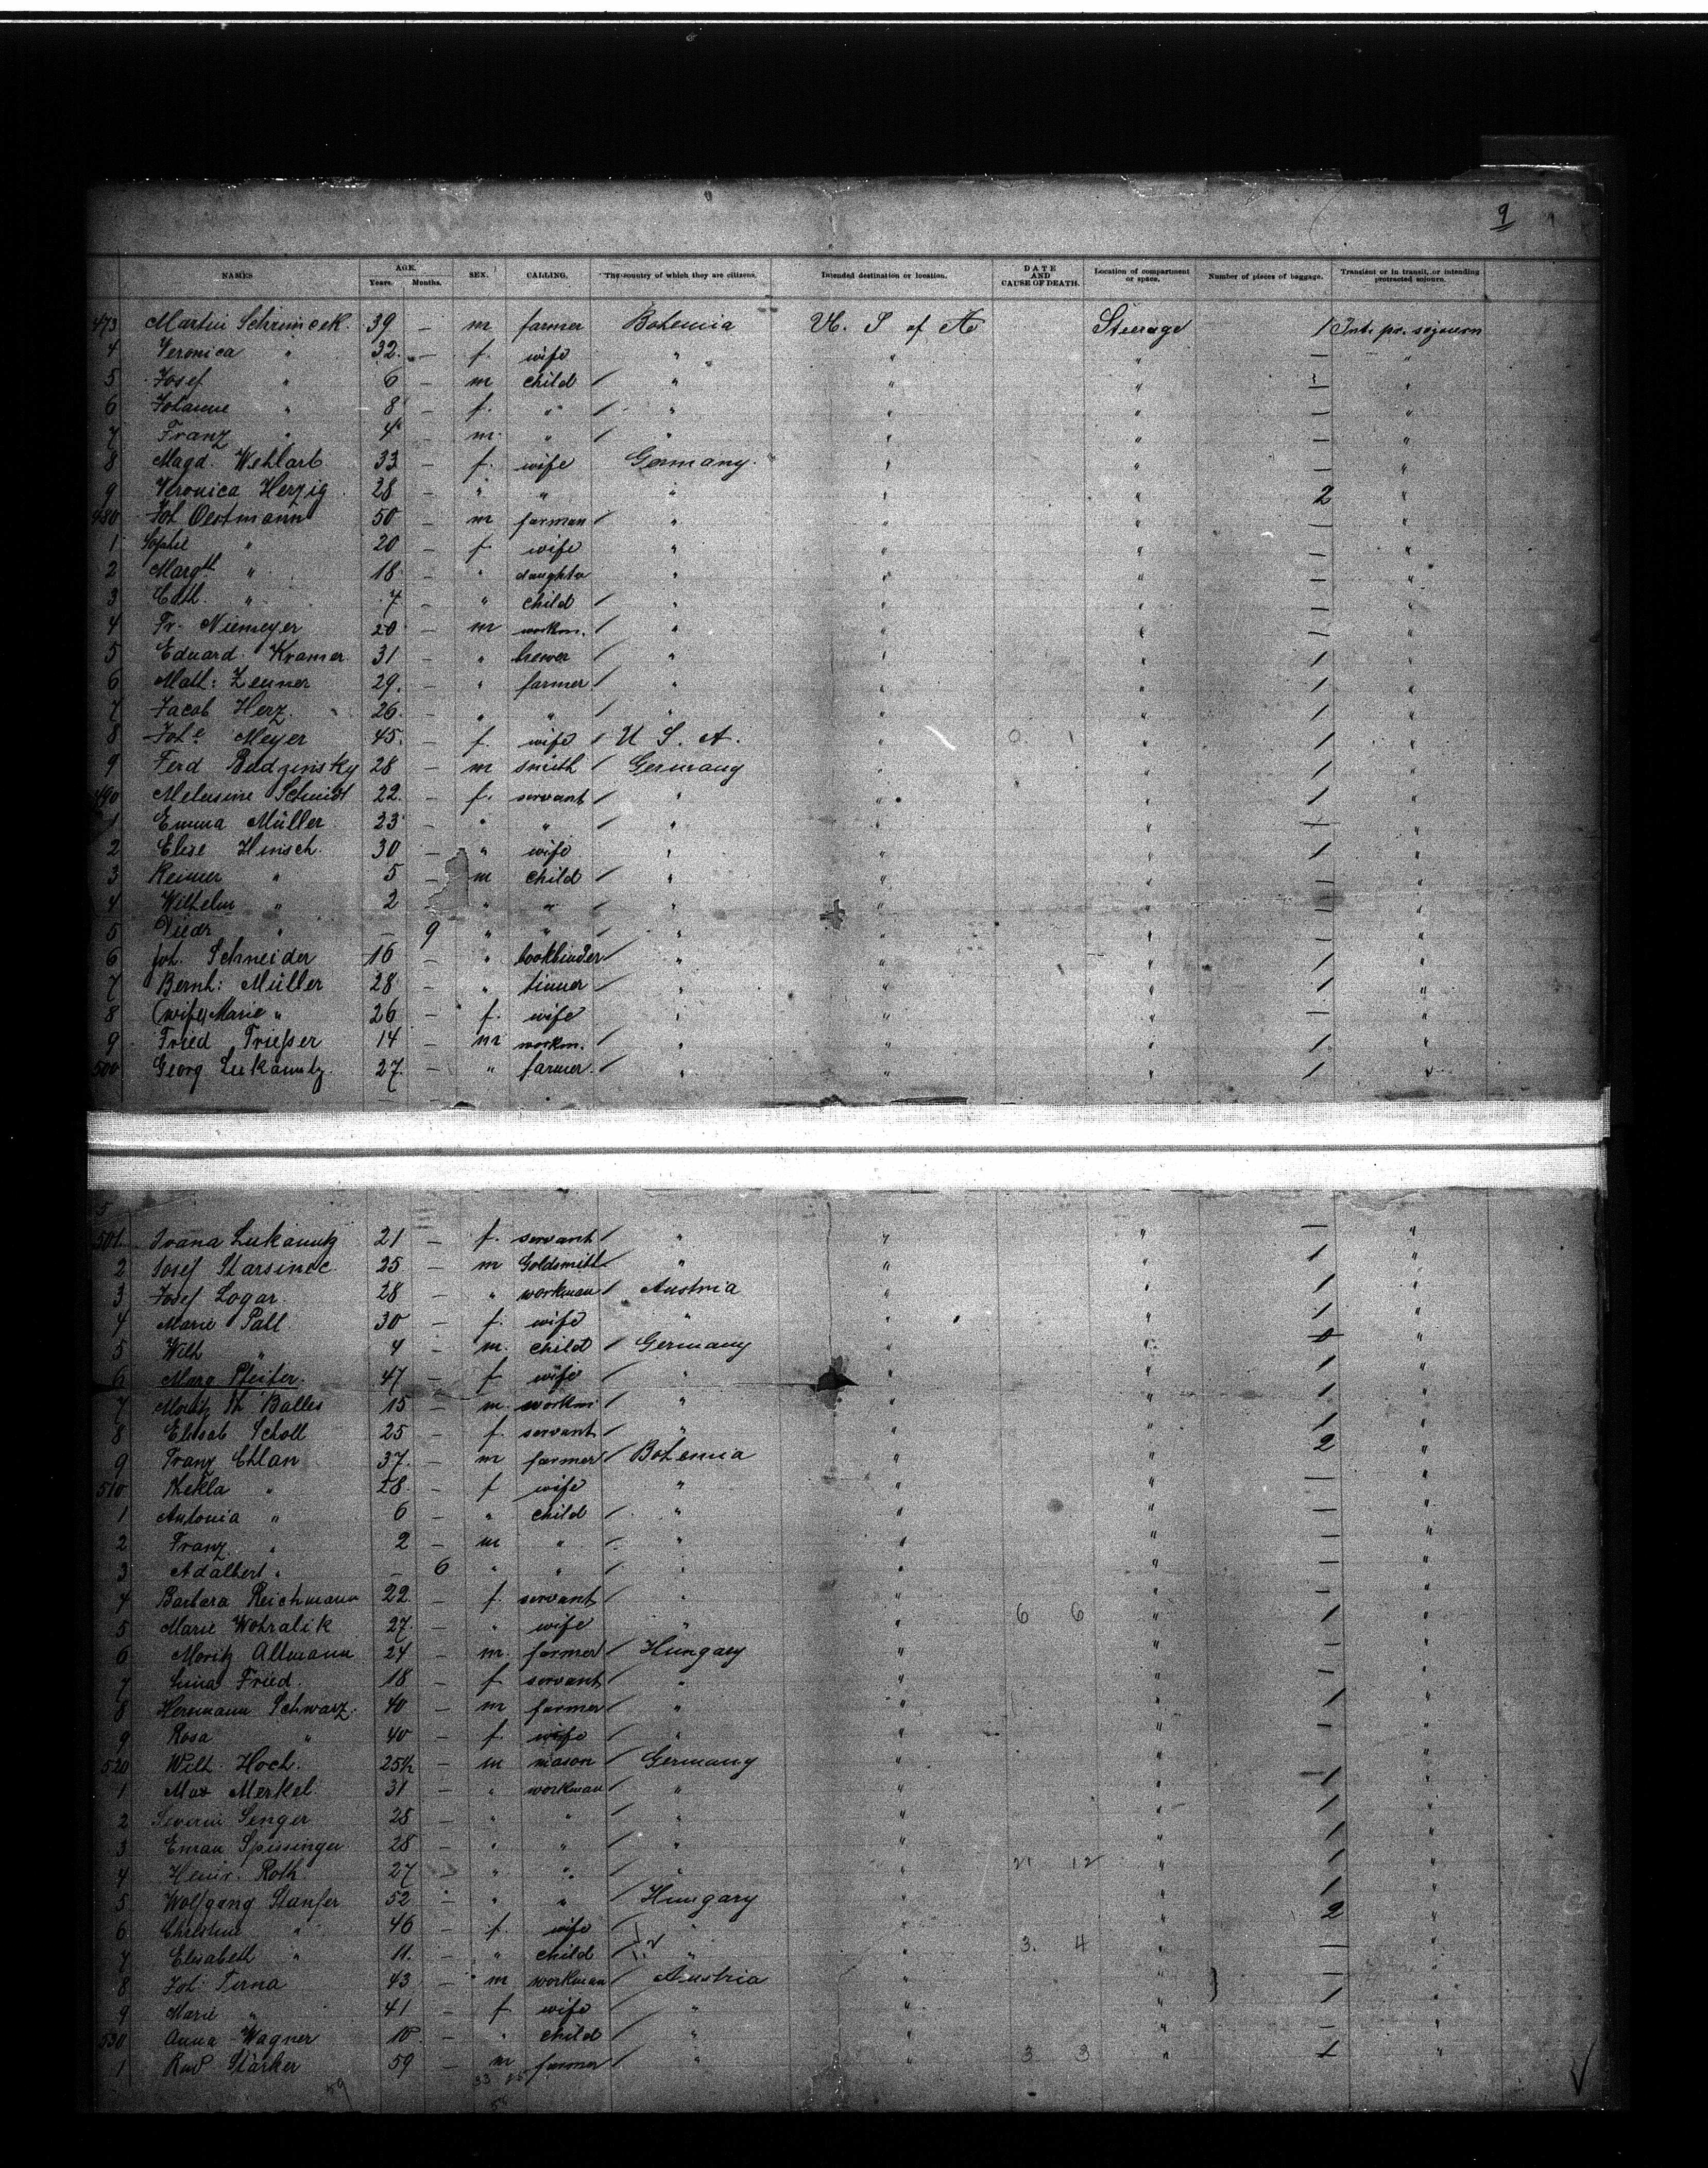 9
NAMES AGE. Years. Months. SEX. CALLING. The country of which they are citizens. Intended destination or location. DATE AND CAUSE OF DEATH. Location of compartment or space. Number of pieces of baggage. Transient or in transit, or intending protracted sojourn.
473 Martin Schrimcek. 39 — m farmer Bohemia U. S of A Steerage 1 Int. pr. sojourn
4 Veronica " 32. — f. wife " " " — "
5 Josef " 6 — m child / " " " — "
6 Johanne " 8 — f. " / " " " — "
7 Franz " 4 — m. " / " " " — "
8 Magd. Wehlart 33 — f. wife Germany. " " — "
9 Veronica Herzig 28 — " " " " " 2 "
480 Joh Oestmann 50 — m farman / " " " — "
1 Sophie " 20 — f. wife " " " — "
2 Margth " 18 — " daughter " " " — "
3 Cath. " 7 — " child / " " " — "
4 Fr. Niemeyer 20 — m workm. / " " " — "
5 Eduard Kramer 31 — " brewer / " " " 1 "
6 Math: Zeuner 29. — " farmer / " " " 1 "
7 Jacob Herz. 26. — " " / " " " 1 "
8 Johe Meyer 45. — f. wife / U. S. A. " 0 1 " 1 "
9 Ferd Budzinsky 28 — m smith / Germany " " 1 "
490 Melusine Schmidt 22. — f. servant / " " " 1 "
1 Emma Müller 23 — " " / " " " — "
2 Elise Hinsch. 30 — " wife " " " 1 "
3 Reimer " 5 — m child / " " " — "
4 Wilhelm " 2 " " / " " " — "
5 Diedr " — 9 " " / " " " — "
6 Joh. Schneider 16 — " bookbinder / " " " 1 "
7 Bernh: Müller 28 — " tinner / " " " 1 "
8 (wife) Marie " 26 — f. wife " " " — "
9 Fried Triesser 14 — m workm. / " " " 1 "
500 Georg Lukanutz. 27. — " farmer / " " " 1 "
501 Ivana Lukanutz 21 — f. servant / " " " — "
2 Josef Starsinec 25 — m Goldsmith " " " 1 "
3 Josef Logar. 28 — " workman / Austria " " 1 "
4 Marie Pall 30 — f. wife " " " 1 "
5 Wilh " 4 — m. child / Germany " " "
6 Marg Pfeifer. 47 — f wife " " " 1 "
7 15 — m. workm. " " " 1 "
8 Elisab Scholl 25 — f. servant / " " " 1 "
9 Franz Chlan 37. — m farmer / Bohemia " " 2 "
510 Thekla " 28. — f wife " " " — "
1 Antonia " 6 — " child / " " " — "
2 Franz " 2 — m " / " " " — "
3 Adalbert " — 6 " " / " " " — "
4 Barbara Reichmann 22. — f. servant / " " " — "
5 Marie Wohralik 27. — " wife " " 6 6 " 1 "
6 Moritz Altmann 24 — m. farmer / Hungary " " — "
7 Fried. 18 — f servant / " " " — "
8 Hermann Schwarz. 40 — m farmer / " " " 1 "
9 Rosa " 40 — f. wife " " " — "
520 Wilh. Hoch. — m mason / Germany " " 1 "
1 Max Merkel 31 — " workman / " " " 1 "
2 Severin Senger 25 — " " / " " " 1 "
3 Eman Spissinger 28 — " " / " " " 1 "
4 Heinr. Roth 27 " " / " " 21 12 " 1 "
5 Wolfgang Stanfer 52 — " " / Hungary " " 2 "
6 Christine " 46 — f. wife " " " — "
7 Elisabeth " 11. — " child / " " 3. 4 " — "
8 Joh: Terna 43 — m workman / Austria " " 1 "
9 Marie " 41 — f wife " " " — "
530 Anna Wagner 10 — " child / " " " — "
1 Rud Stärker 59 — m farmer / " " 3 3 " 1 "